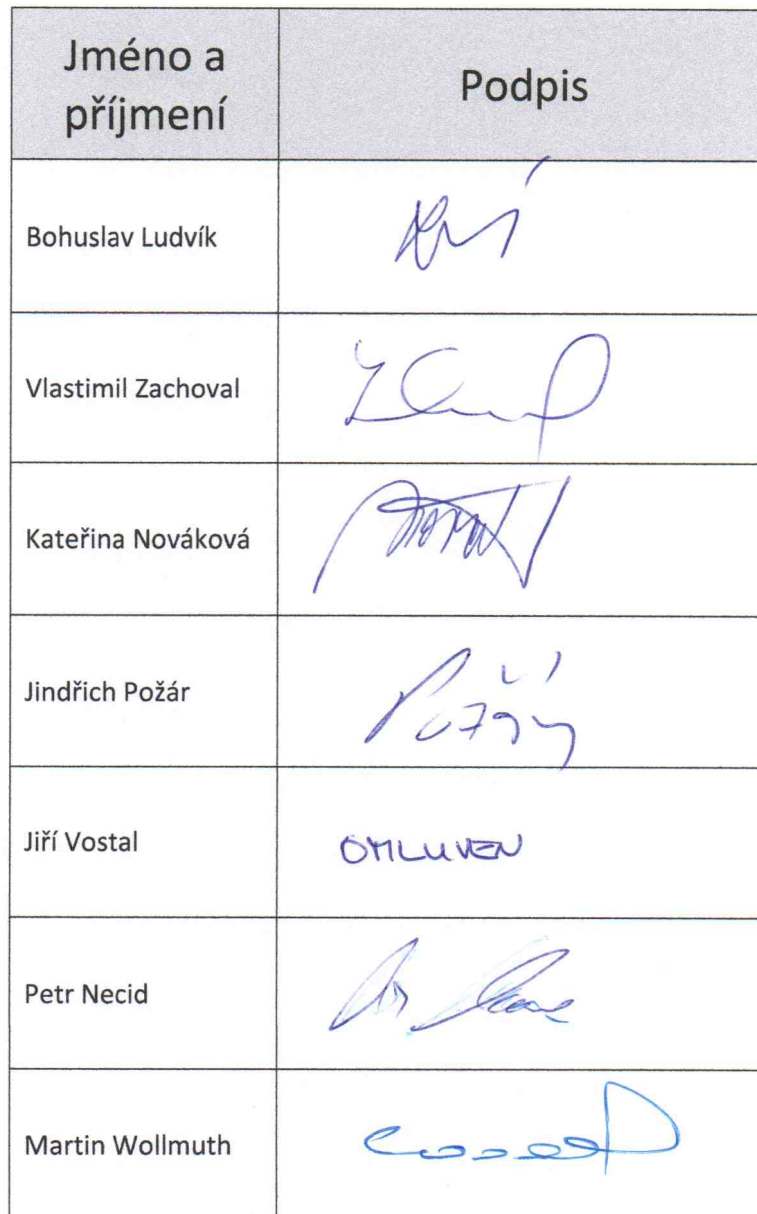 Jméno a
příjmení
Podpis
Bohuslav Ludvík
Vlastimil Zachoval
Kateřina Nováková
Jindřich Požár
Požár
Jiří Vostal
OMLUVEN
Petr Necid
Martin Wollmuth